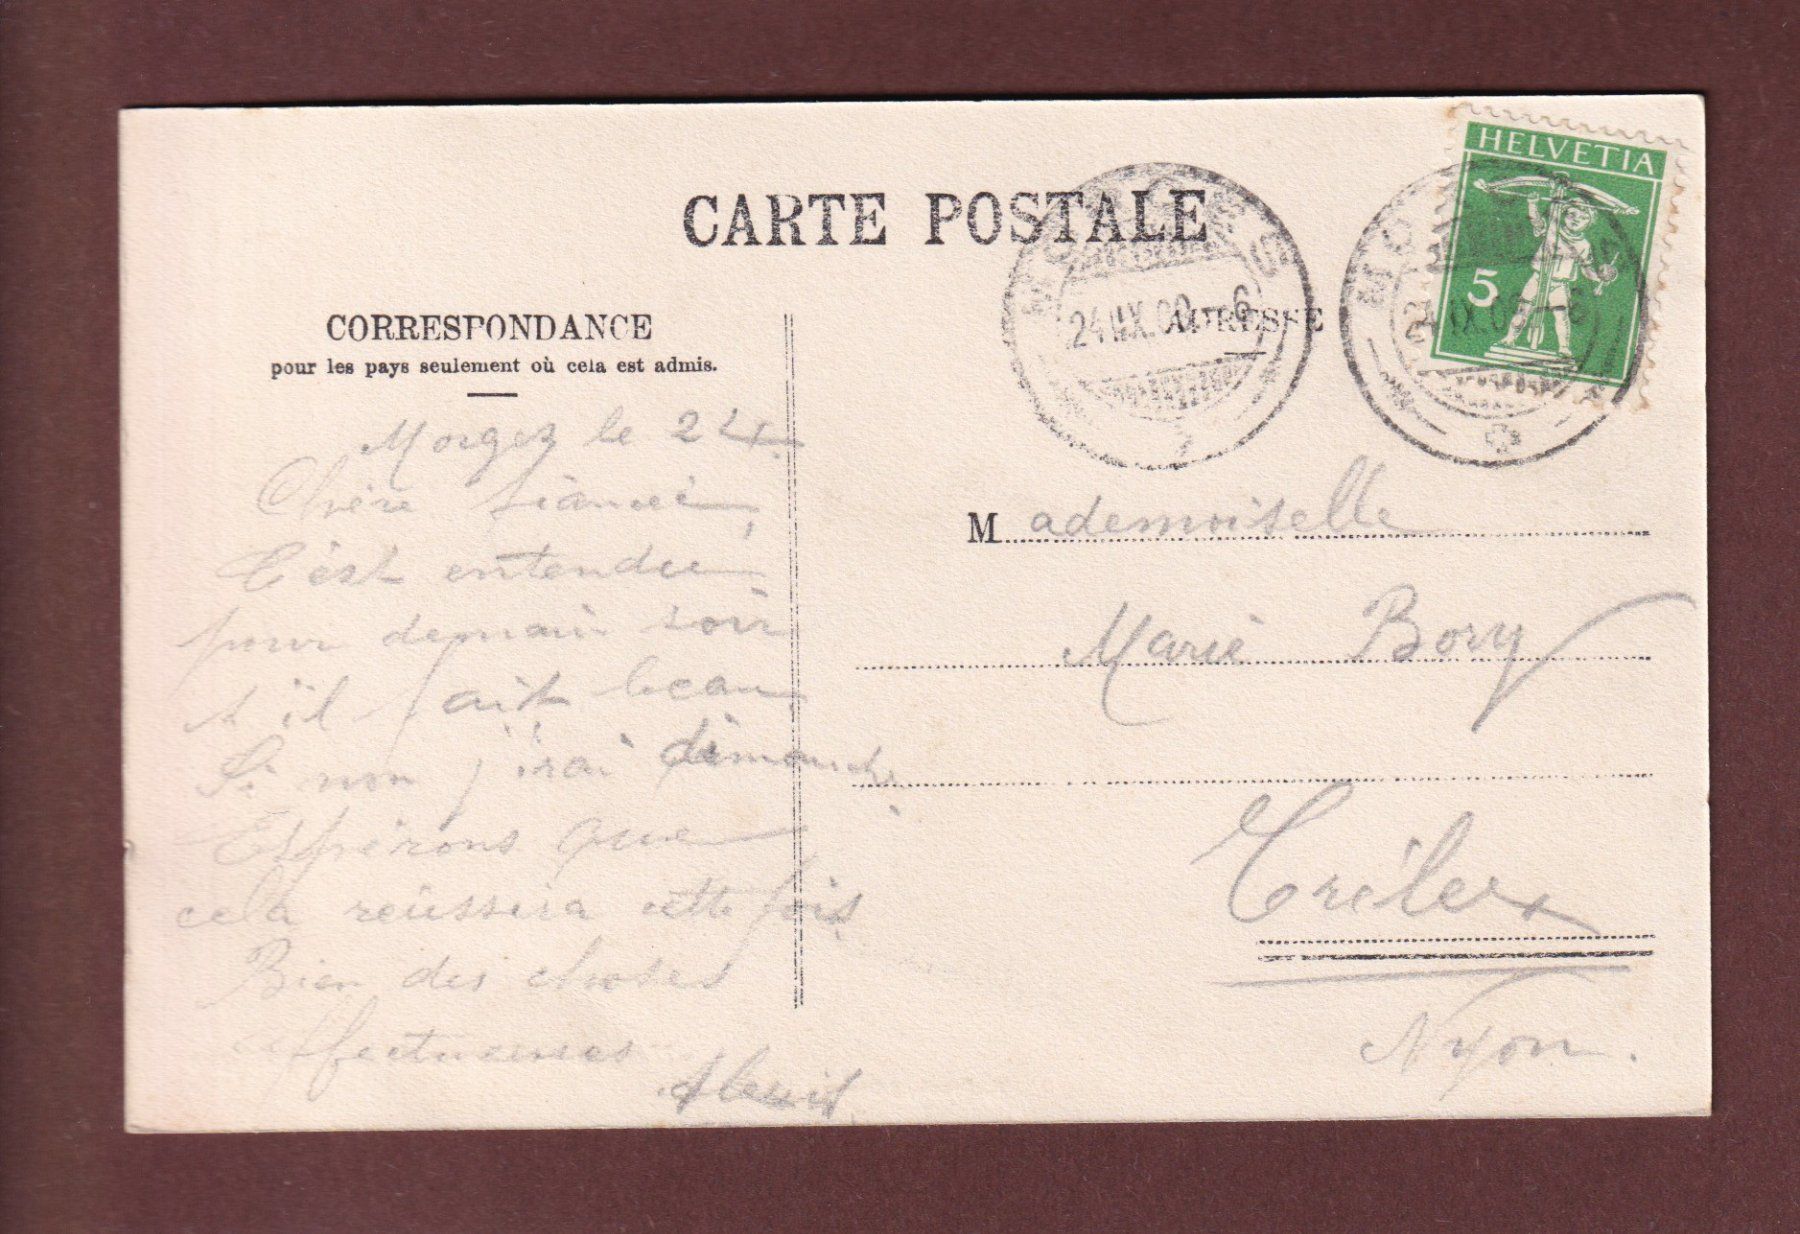 CARTE POSTALE
HELVETIA
5
MORGES
24.IX.09 - 6
MORGES
24.IX.09 - 6
CORRESPONDANCE
pour les pays seulement où cela est admis.
ADRESSE
Morges le 24
Chère fiancée,
C'est entendu
pour demain soir
s'il fait beau
Si non j'irai dimanche
Espérons que
cela réussira cette fois
Bien des choses
affectueuses
Alexis
Mademoiselle
Marie Bory
Trélex
Nyon.